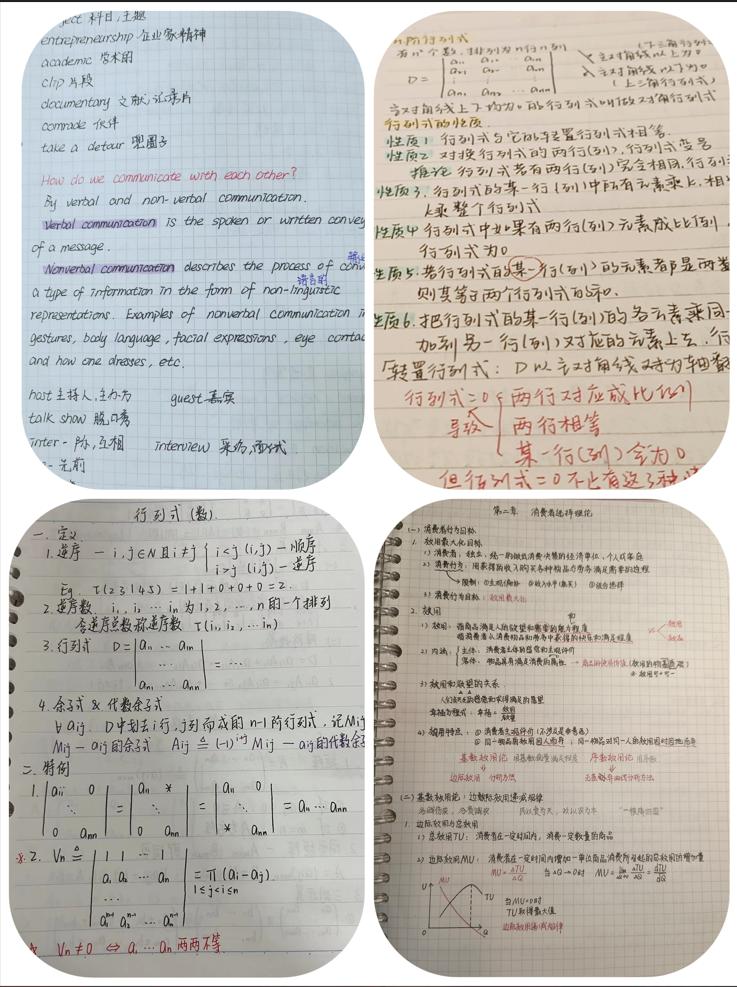 ject 科目,主题
entrepreneurship 企业家精神
academic 学术的
clip 片段
documentary 文献,记录片
comrade 伙伴
take a detour 兜圈子
How do we communicate with each other?
By verbal and non-verbal communication.
Verbal communication is the spoken or written convey
of a message.
Nonverbal communication describes the process of conv
语言的
a type of information in the form of non-linguistic
representations. Examples of nonverbal communication in
gestures, body language, facial expressions, eye contac
and how one dresses, etc.
host 主持人,主办方 guest 嘉宾
talk show 脱口秀
inter- 际,互相 interview 采访,面试
- 先前
n阶行列式
有n²个数,排列为n行n列
D =
主对角线以上为0
(下三角行列式
主对角线以下为0
(上三角行列式)
主对角线上下均为0的行列式叫做对角行列式
行列式的性质
性质1 行列式与它的转置行列式相等.
性质2 对换行列式的两行(列),行列式变号
推论 行列式若有两行(列)完全相同,行列式
性质3. 行列式的某一行(列)中所有元素乘上.相
k乘整个行列式
性质4 行列式中如果有两行(列)元素成比例,
行列式为0
性质5.若行列式的某一行(列)的元素都是两数
则其等于两个行列式的和.
性质6.把行列式的某一行(列)的各元素乘同一
加到另一行(列)对应的元素上去,行
转置行列式: D以主对角线对为轴翻
行列式=0 两行对应成比例
导致 两行相等
某一行(列)全为0
但行列式=0不止有这3种情
行列式(数).
一. 定义
1.逆序 — i,j∈N且i≠j i<j (i,j)—顺序
i>j (i,j)—逆序
Eg. τ(23145) = 1+1+0+0+0 = 2.
2.逆序数 i₁,i₂ … in 为1,2,…,n的一个排列
含逆序总数称逆序数 τ(i₁,i₂,…in)
3.行列式 D = |a₁₁ … a₁n
⋮
an₁ … ann| = …
4.余子式 & 代数余子式
∀aij. D中划去i行,j列而成的n-1阶行列式,记Mij
Mij — aij的余子式 Aij ≜ (-1)^i+j Mij — aij的代数余子
二. 特例
1. |a₁₁ 0 ⋱ 0 ann| = |a₁₁ * ⋱ 0 ann| = |a₁₁ 0 ⋱ * ann| = a₁₁ … ann
※2. Vn ≜ |1 1 … 1
a₁ a₂ … an
…
a₁^n-1 a₂^n-1 … an^n-1| = π (ai-aj)
1≤j<i≤n
Vn≠0 ⇔ a₁ … an 两两不等.
第二章 消费者选择理论
(一) 消费者行为目标
1. 效用最大化目标
1) 消费者:独立、统一的做出消费决策的经济单位,个人或家庭
2) 消费行为:用获得的收入购买各种物品与劳务满足需要的过程
限制:
3) 消费行为目标:效用最大化
2. 效用
1) 效用:指商品满足人的欲望和需要的能力程度
指消费者从消费物品和劳务中获得的快乐和满足程度
2) 内涵: 主体:消费者主体的感受和主观评价
客体:物品具有满足消费的属性 → 商品的使用价值
3) 效用和欲望的关系
幸福方程式:幸福=效用/欲望
4) 效用特点:①消费者主观评价(不涉及是非善恶)
②同一物品的效用因人而异;同一物品对同一人的效用因时因地而异
基数效用论 序数效用论
边际效用分析方法 无差异曲线分析方法
(二) 基数效用论:边际效用递减规律
1. 边际效用与总效用
1) 总效用TU:消费者在一定时间内,消费一定数量的商品
2) 边际效用MU:消费者在一定时间内增加一单位商品消费所引起的总效用的增加量
MU=ΔTU/ΔQ 当ΔQ→0时 MU=lim ΔTU/ΔQ=dTU/dQ
U MU TU
当MU=0时
TU取得最大值
0 Q
边际效用递减规律